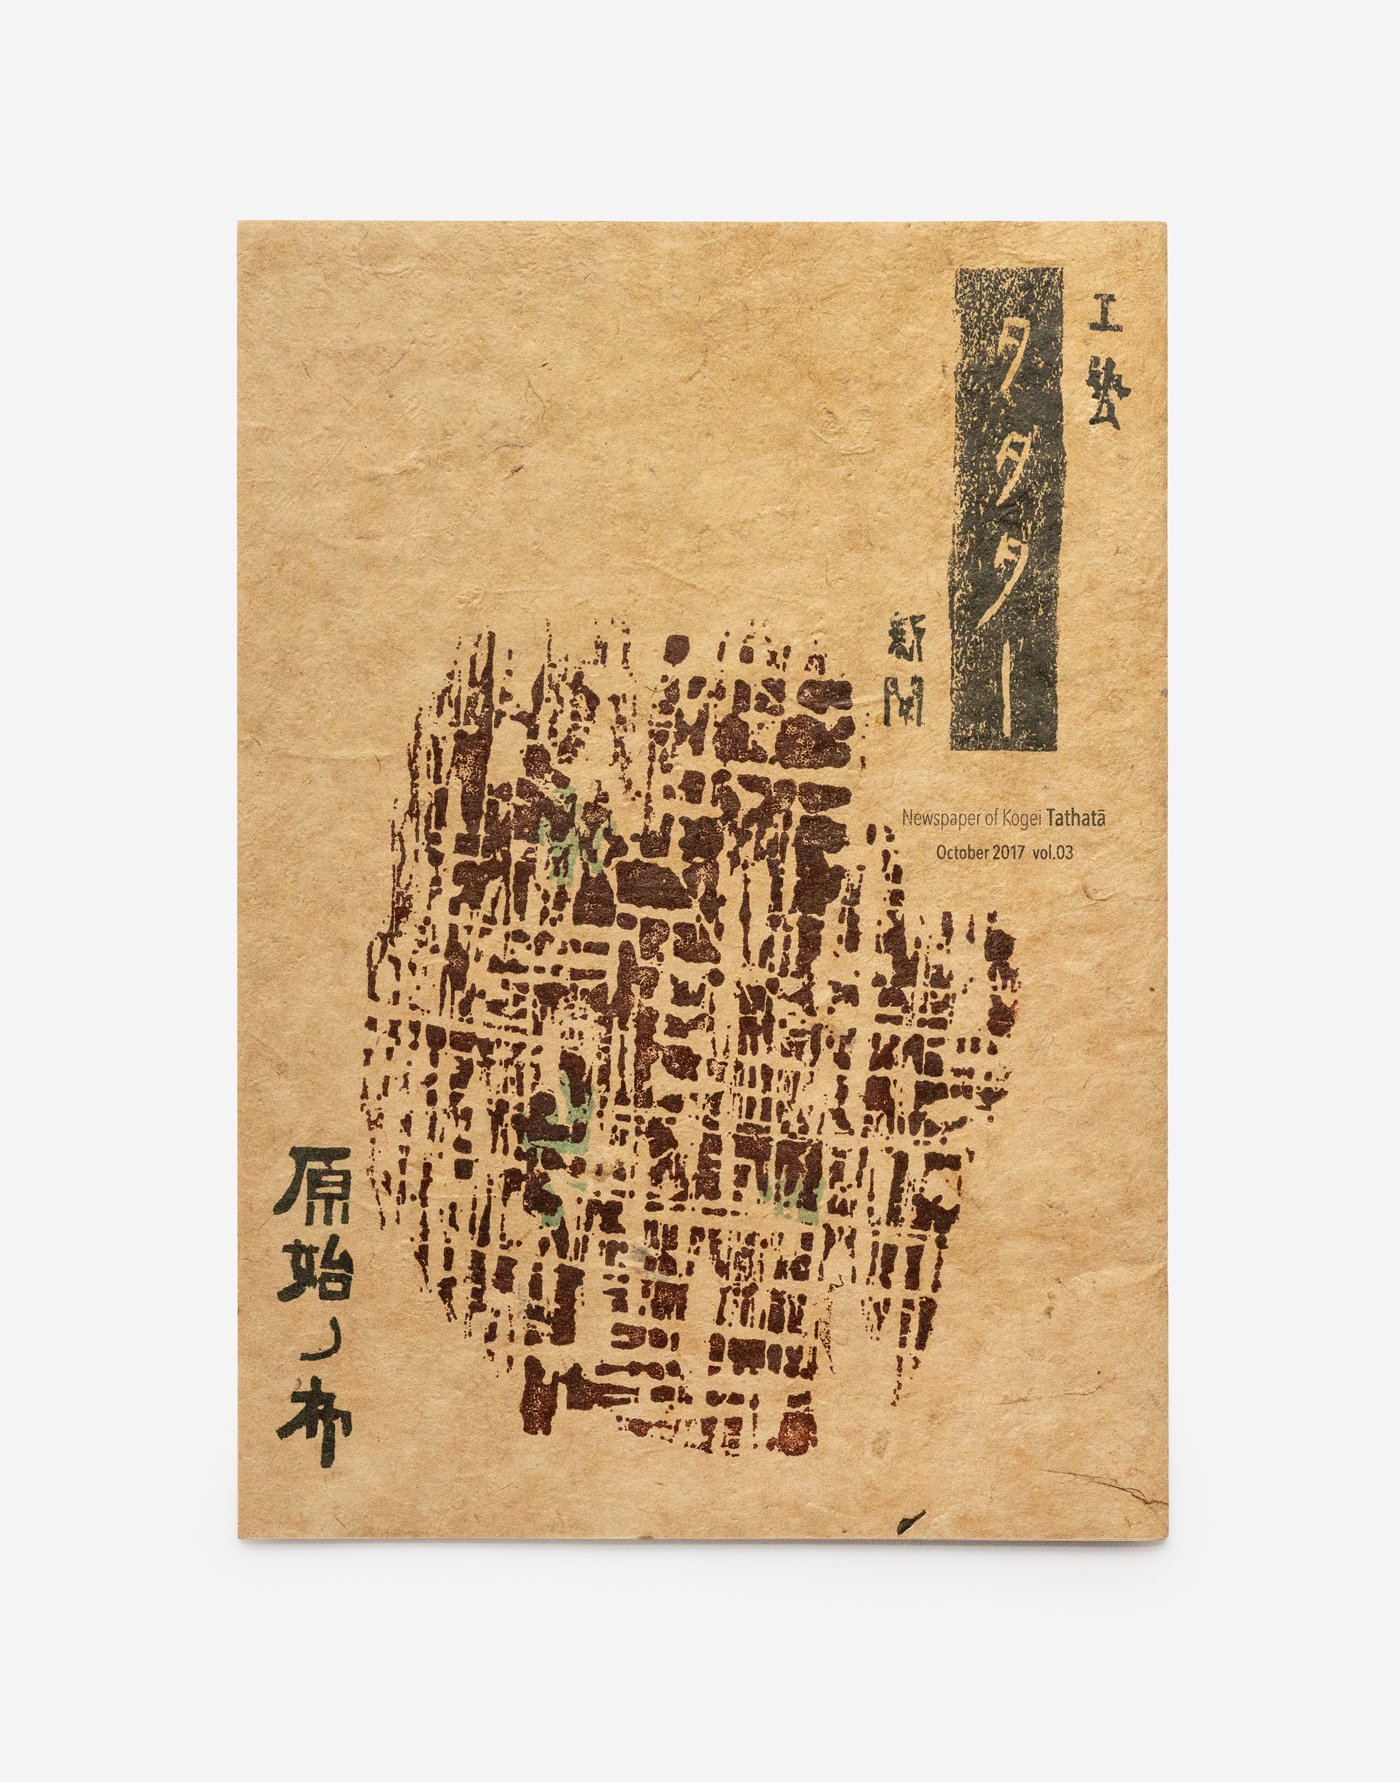 工藝
タタター
新聞
Newspaper of Kogei Tathatā
October 2017 vol.03
原始ノ布